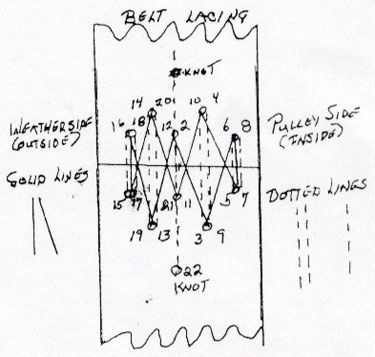 BELT LACING
KNOT
14 20 10 4
18
16 12 2 6 8
WEATHERSIDE
(OUTSIDE)
SOLID LINES
PULLEY SIDE
(INSIDE)
DOTTED LINES
15 17 21 11 5 7
19 13 3 9
22
KNOT